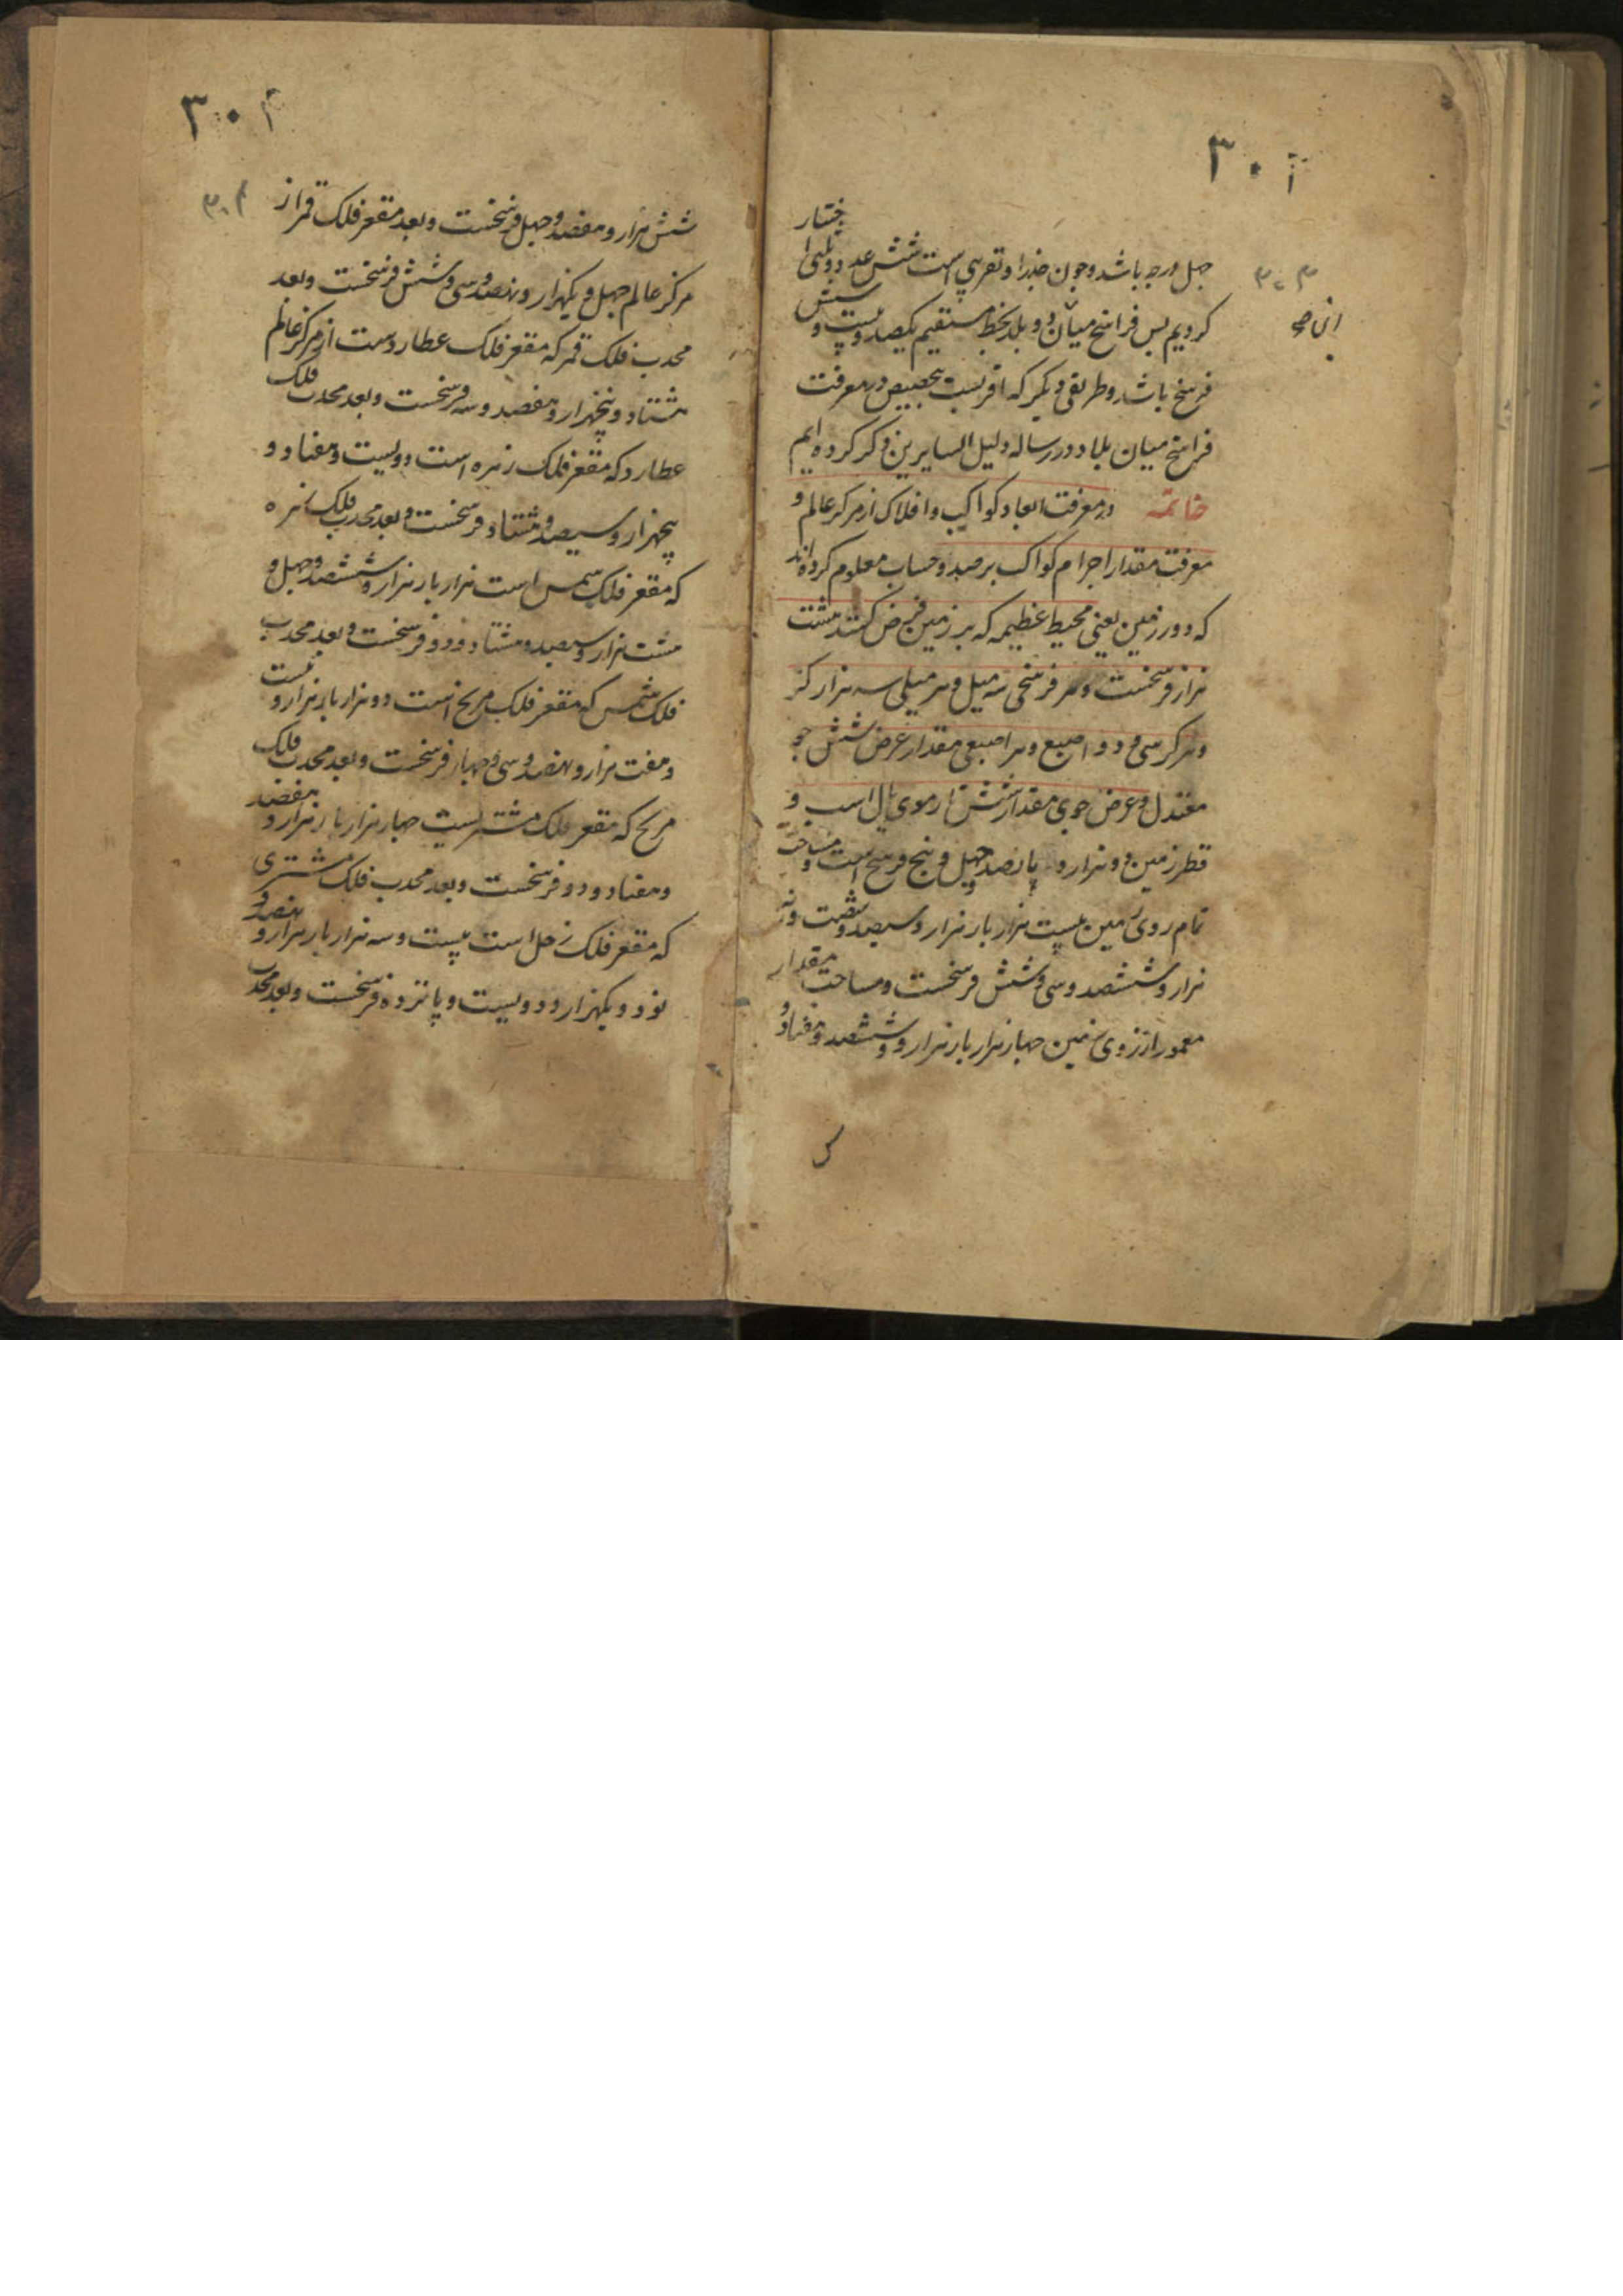 ۳۰۳
چهل درجه باشد و چون جذر او تقریبی است شش عدد و ثلثی اختیار
کردیم پس فراسخ میان دو بلد بخط مستقیم یکصد و بیست و شش
فرسخ باشد و طریقی دیگر که اقربست بتحقیق در معرفت
فراسخ میان بلاد در رساله دلیل السایرین ذکر کرده ایم
خاتمة در معرفت ابعاد کواکب و افلاک از مرکز عالم و
معرفت مقدار اجرام کواکب برصد و حساب معلوم کرده‌اند
که دور زمین یعنی محیط عظیمه که بر زمین فرض کنند هشت
هزار فرسخست و هر فرسخی سه میل و هر میلی سه هزار گز
و هر گز سی و دو اصبع و هر اصبعی مقدار عرض شش جو
معتدل و عرض جوی مقدار شش تار موی یال اسب و
قطر زمین دو هزار و پانصد و چهل و پنج فرسخ است و مساحت
تمام روی زمین بیست هزار بار هزار و سیصد و شصت و نه
هزار و ششصد و سی و شش فرسخست و مساحت مقدار
معمور از روی زمین چهار هزار بار هزار و ششصد و هفتاد و
۳۰۴
شش هزار و هفصد و چهل فرسخست و بعد مقعر فلک قمر از
مرکز عالم چهل و یکهزار و نهصد و سی و شش فرسخست و بعد
محدب فلک قمر که مقعر فلک عطاردست از مرکز عالم
هشتاد و پنجهزار و هفصد و سه فرسخست و بعد محدب فلک
عطارد که مقعر فلک زهره است دویست و هفتاد و
پنجهزار و سیصد و هشتاد فرسخست و بعد محدب فلک زهره
که مقعر فلک شمس است هزار بار هزار و ششصد و چهل و
هشت هزار و سیصد و هشتاد و دو فرسخست و بعد محدب
فلک شمس که مقعر فلک مریخ است دو هزار بار هزار و بیست
و هفت هزار و نهصد و سی و چهار فرسخست و بعد محدب فلک
مریخ که مقعر فلک مشتریست چهار هزار بار هزار و هفصد
و هفتاد و دو فرسخست و بعد محدب فلک مشتری
که مقعر فلک زحل است بیست و سه هزار بار هزار و نهصد و
نود و یکهزار و دویست و پانزده فرسخست و بعد محدب